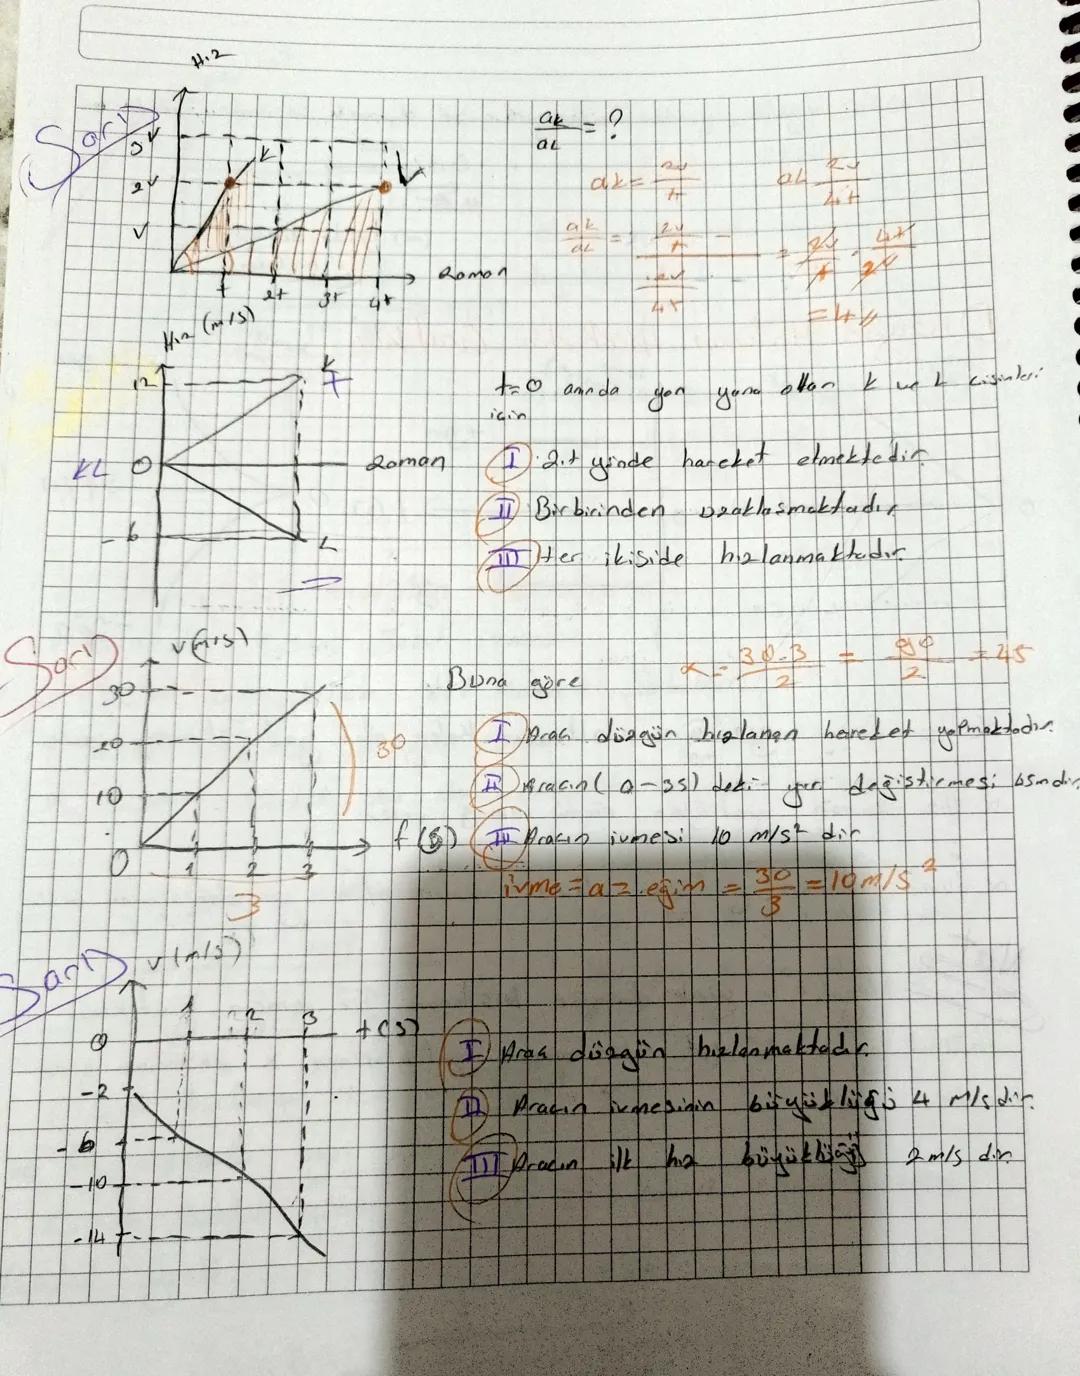 Hız
Soru
3v
2v
v
K
L
t
2t
3t
4t
Zaman
ak/aL = ?
ak = 2v/t
aL 2v/4t
ak/aL = 2v/t / 2v/4t = 2v/t . 4t/2v
= 4//
Hız (m/s)
12
K
+
KL
0
Zaman
-6
L
t=0 anında yan yana olan K ve L cisimleri
için
I Zıt yönde hareket etmektedir
II Birbirinden uzaklaşmaktadır
III Her ikiside hızlanmaktadır
Soru
v(m/s)
30
20
10
0
1
2
3
t(s)
30
3
Buna göre
x = 30.3/2 = 90/2 = 45
I Araç düzgün hızlanan hareket yapmaktadır.
II Aracın (0-3s) deki yer değiştirmesi
III Aracın ivmesi 10 m/s² dir
ivme = a = eğim = 30/3 = 10 m/s²
Soru
v(m/s)
1
2
3
t(s)
0
-2
-6
-10
-14
I Araç düzgün hızlanmaktadır.
II Aracın ivmesinin büyüklüğü 4 m/s dir.
III Aracın ilk hız büyüklüğü 2 m/s dir.